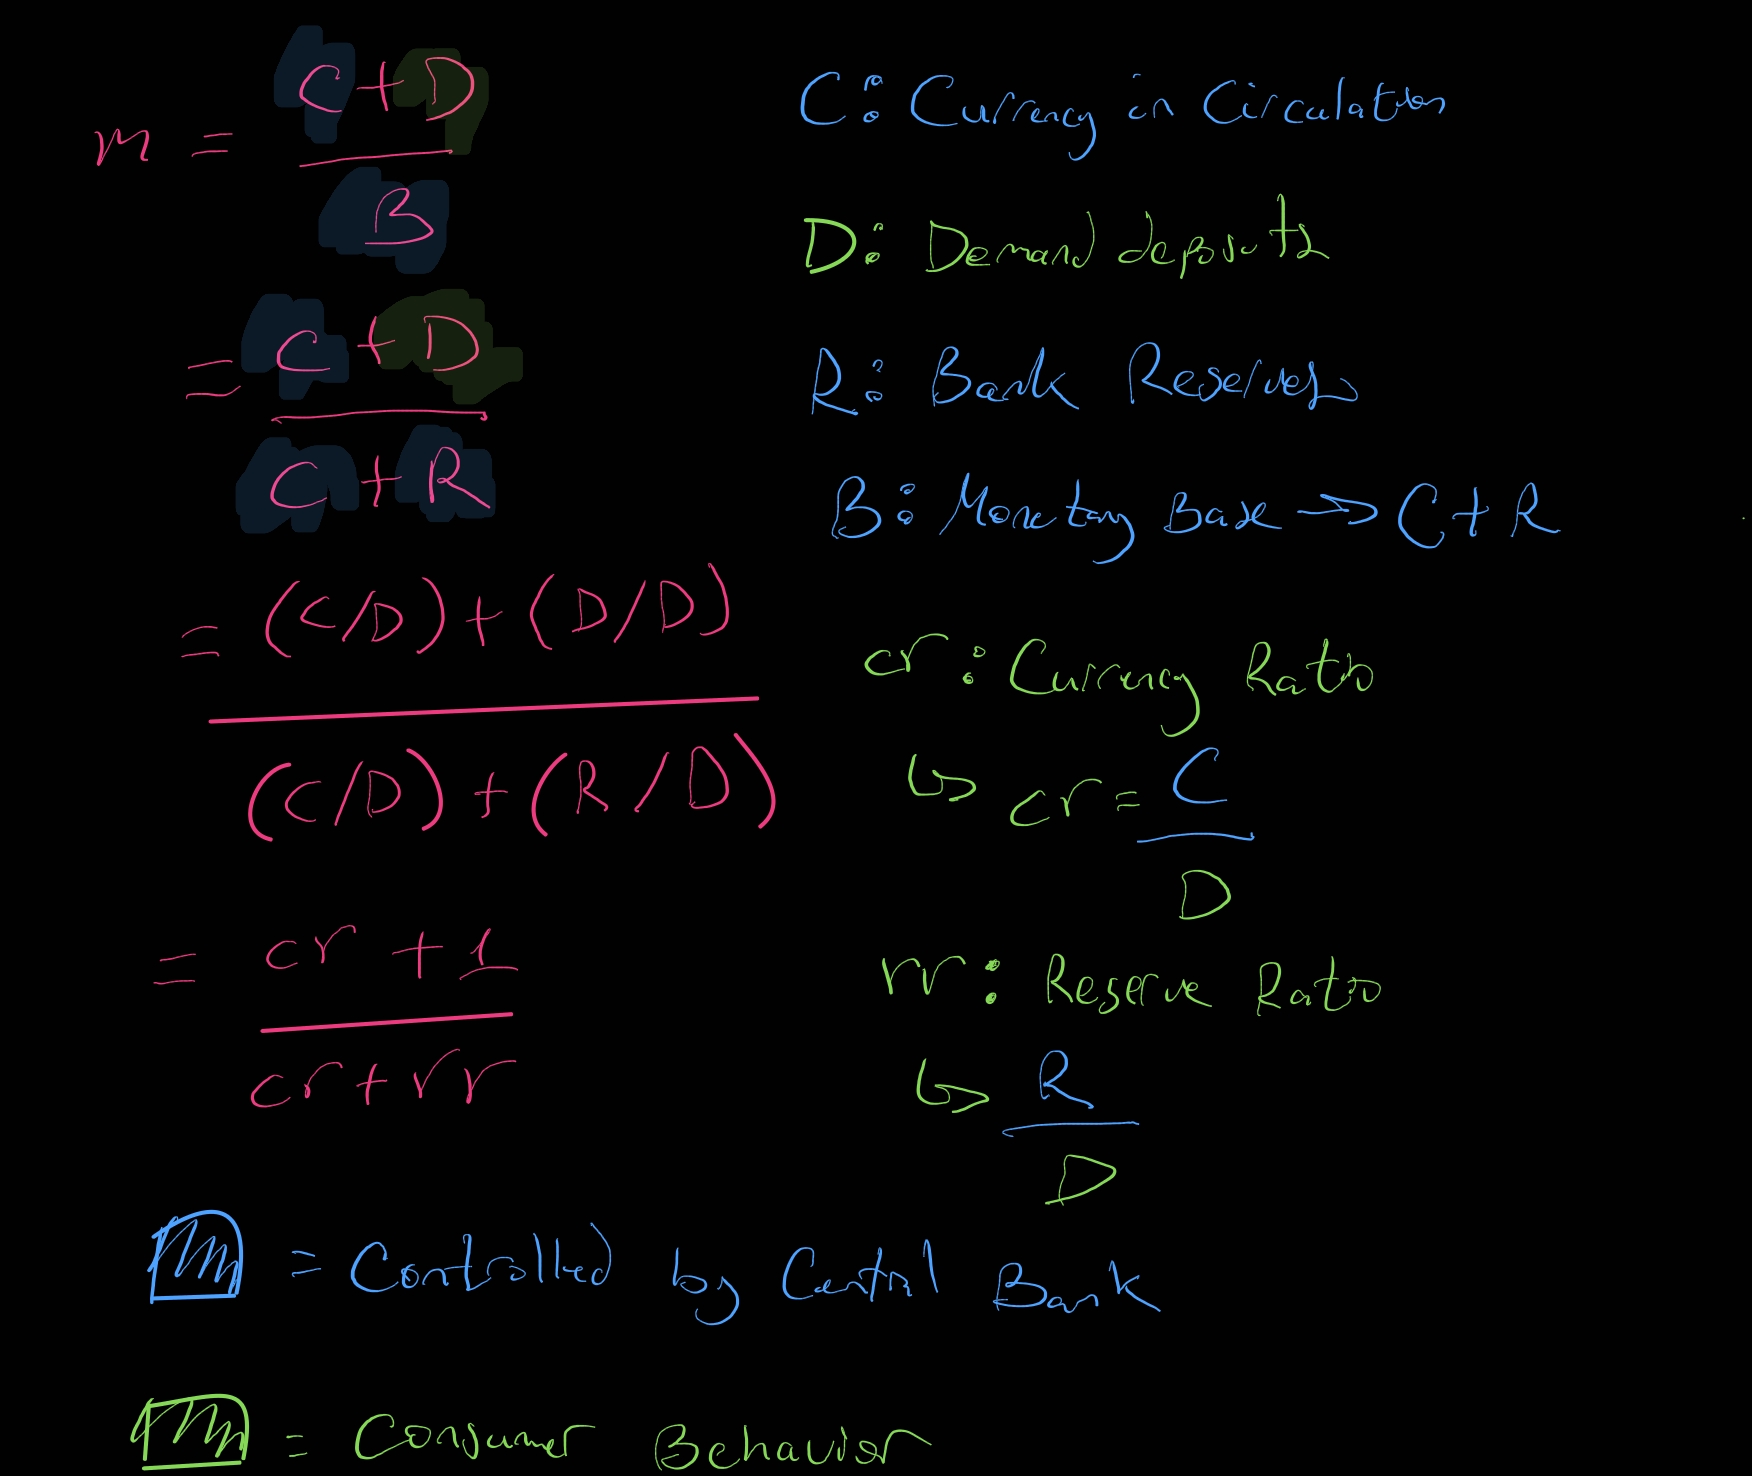 m = C + D
B
= C + D
C + R
= (C/D) + (D/D)
(C/D) + (R/D)
= cr + 1
cr + rr
C: Currency in Circulation
D: Demand deposits
R: Bank Reserves
B: Monetary Base → C + R
cr: Currency Ratio
↳ cr = C
D
rr: Reserve Ratio
↳ R
D
= Controlled by Central Bank
= Consumer Behavior